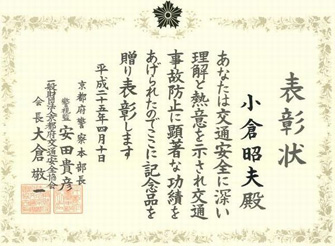 表彰状
小倉昭夫殿
あなたは交通安全に深い
理解と熱意を示され交通
事故防止に顕著な功績を
あげられたのでここに記念品を
贈り表彰します
平成二十五年四月十日
京都府警察本部長
警視監 安田貴彦
一般財団法人京都府交通安全協会
会長 大倉敬一